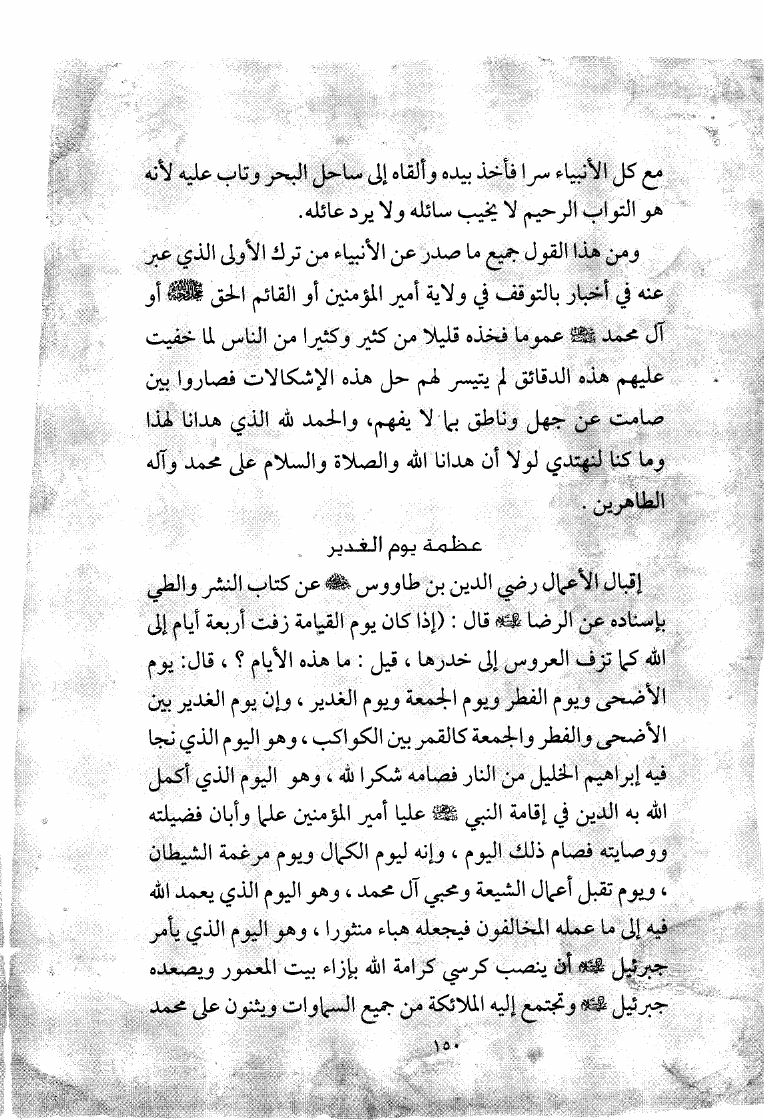 مع كل الأنبياء سرا فأخذ بيده وألقاه إلى ساحل البحر وتاب عليه لأنه
هو التواب الرحيم لا يخيب سائله ولا يرد عائله.
ومن هذا القول جميع ما صدر عن الأنبياء من ترك الأولى الذي عبر
عنه في أخبار بالتوقف في ولاية أمير المؤمنين أو القائم الحق أو
آل محمد عموما فخذه قليلا من كثير وكثيرا من الناس لما خفيت
عليهم هذه الدقائق لم يتيسر لهم حل هذه الإشكالات فصاروا بين
صامت عن جهل وناطق بما لا يفهم، والحمد لله الذي هدانا لهذا
وما كنا لنهتدي لولا أن هدانا الله والصلاة والسلام على محمد وآله
الطاهرين .
عظمة يوم الغدير
إقبال الأعمال رضي الدين بن طاووس عن كتاب النشر والطي
بإسناده عن الرضا قال : (إذا كان يوم القيامة زفت أربعة أيام إلى
الله كما تزف العروس إلى خدرها ، قيل : ما هذه الأيام ؟ ، قال: يوم
الأضحى ويوم الفطر ويوم الجمعة ويوم الغدير ، وإن يوم الغدير بين
الأضحى والفطر والجمعة كالقمر بين الكواكب ، وهو اليوم الذي نجا
فيه إبراهيم الخليل من النار فصامه شكرا لله ، وهو اليوم الذي أكمل
الله به الدين في إقامة النبي عليا أمير المؤمنين علما وأبان فضيلته
ووصايته فصام ذلك اليوم ، وإنه ليوم الكمال ويوم مرغمة الشيطان
، ويوم تقبل أعمال الشيعة ومحبي آل محمد ، وهو اليوم الذي يعمد الله
فيه إلى ما عمله المخالفون فيجعله هباء منثورا ، وهو اليوم الذي يأمر
جبرئيل أن ينصب كرسي كرامة الله بإزاء بيت المعمور ويصعده
جبرئيل وتجتمع إليه الملائكة من جميع السماوات ويثنون على محمد
١٥٠